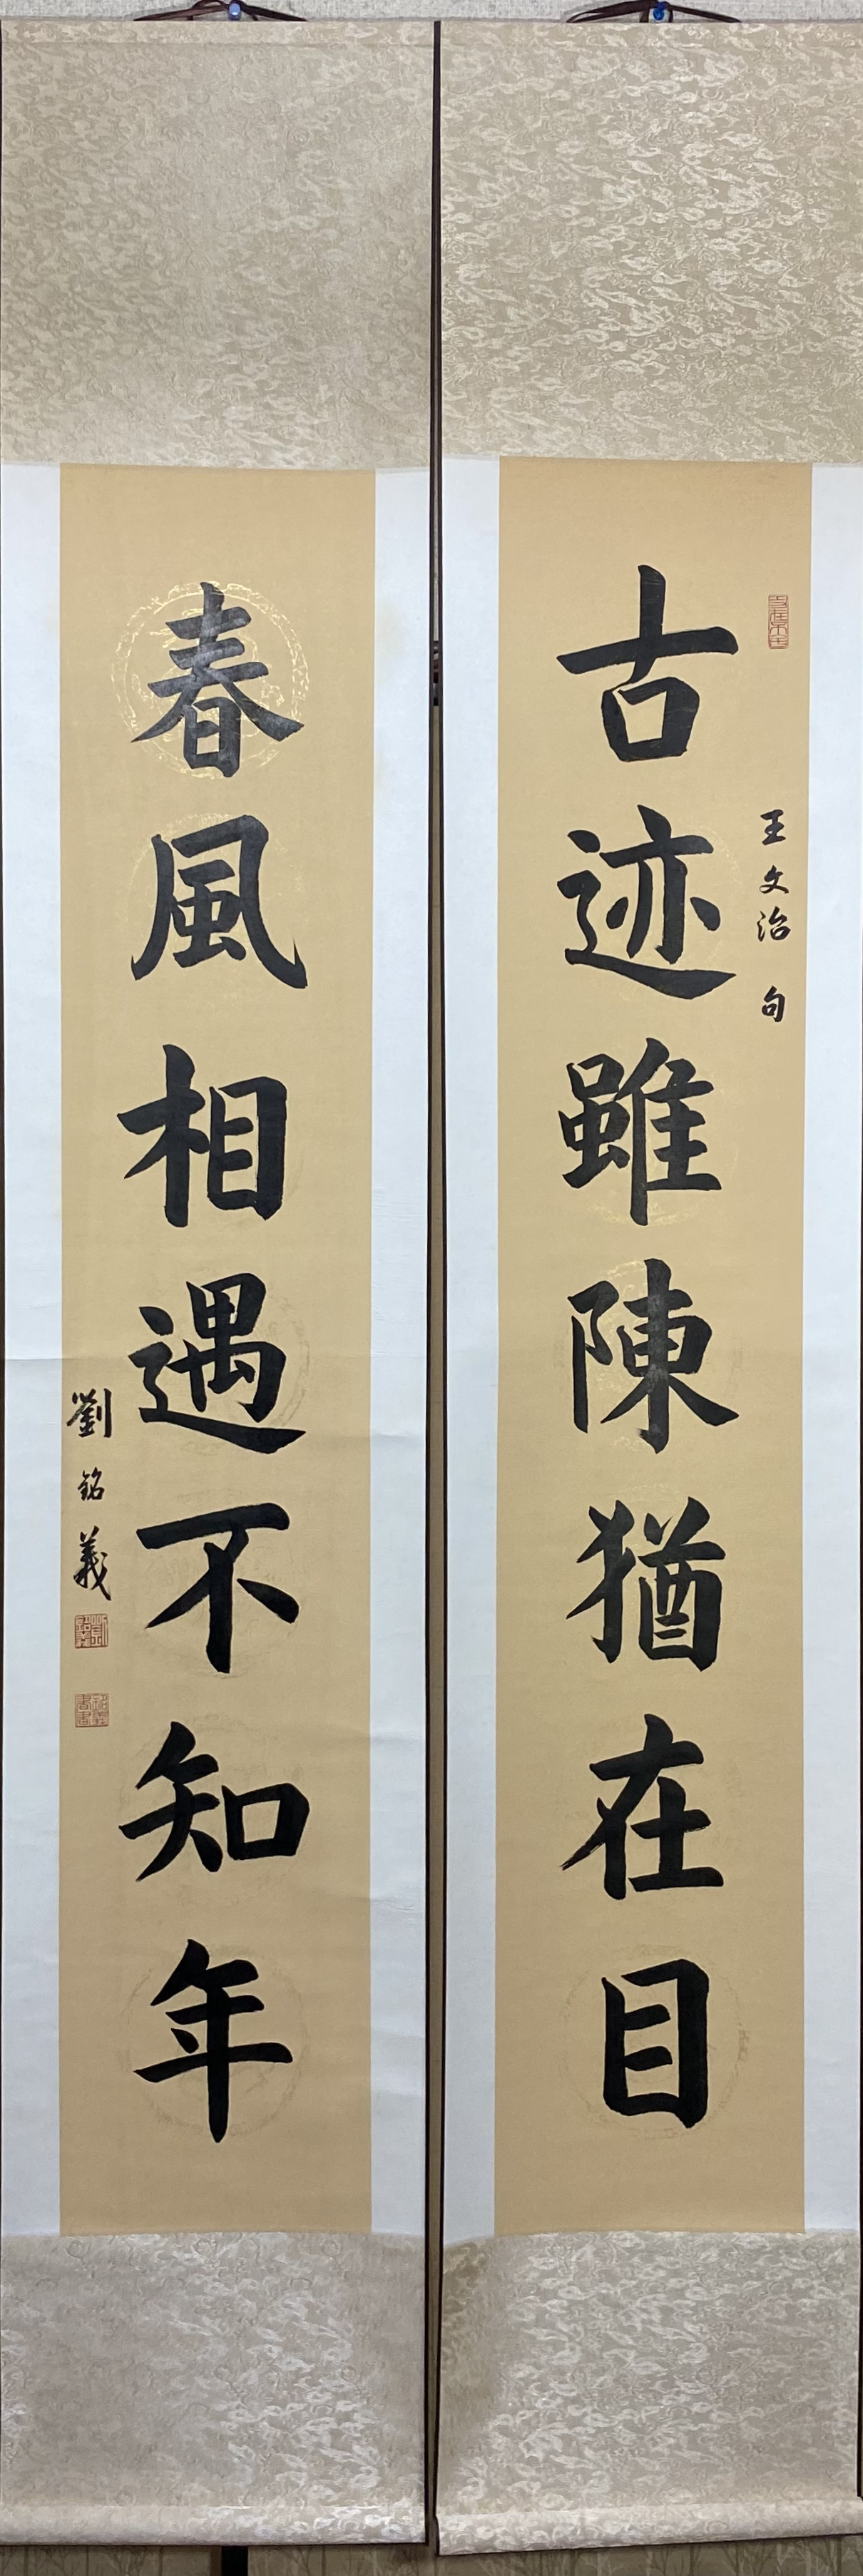 王文治 句
古迹雖陳猶在目
春風相遇不知年
劉銘義